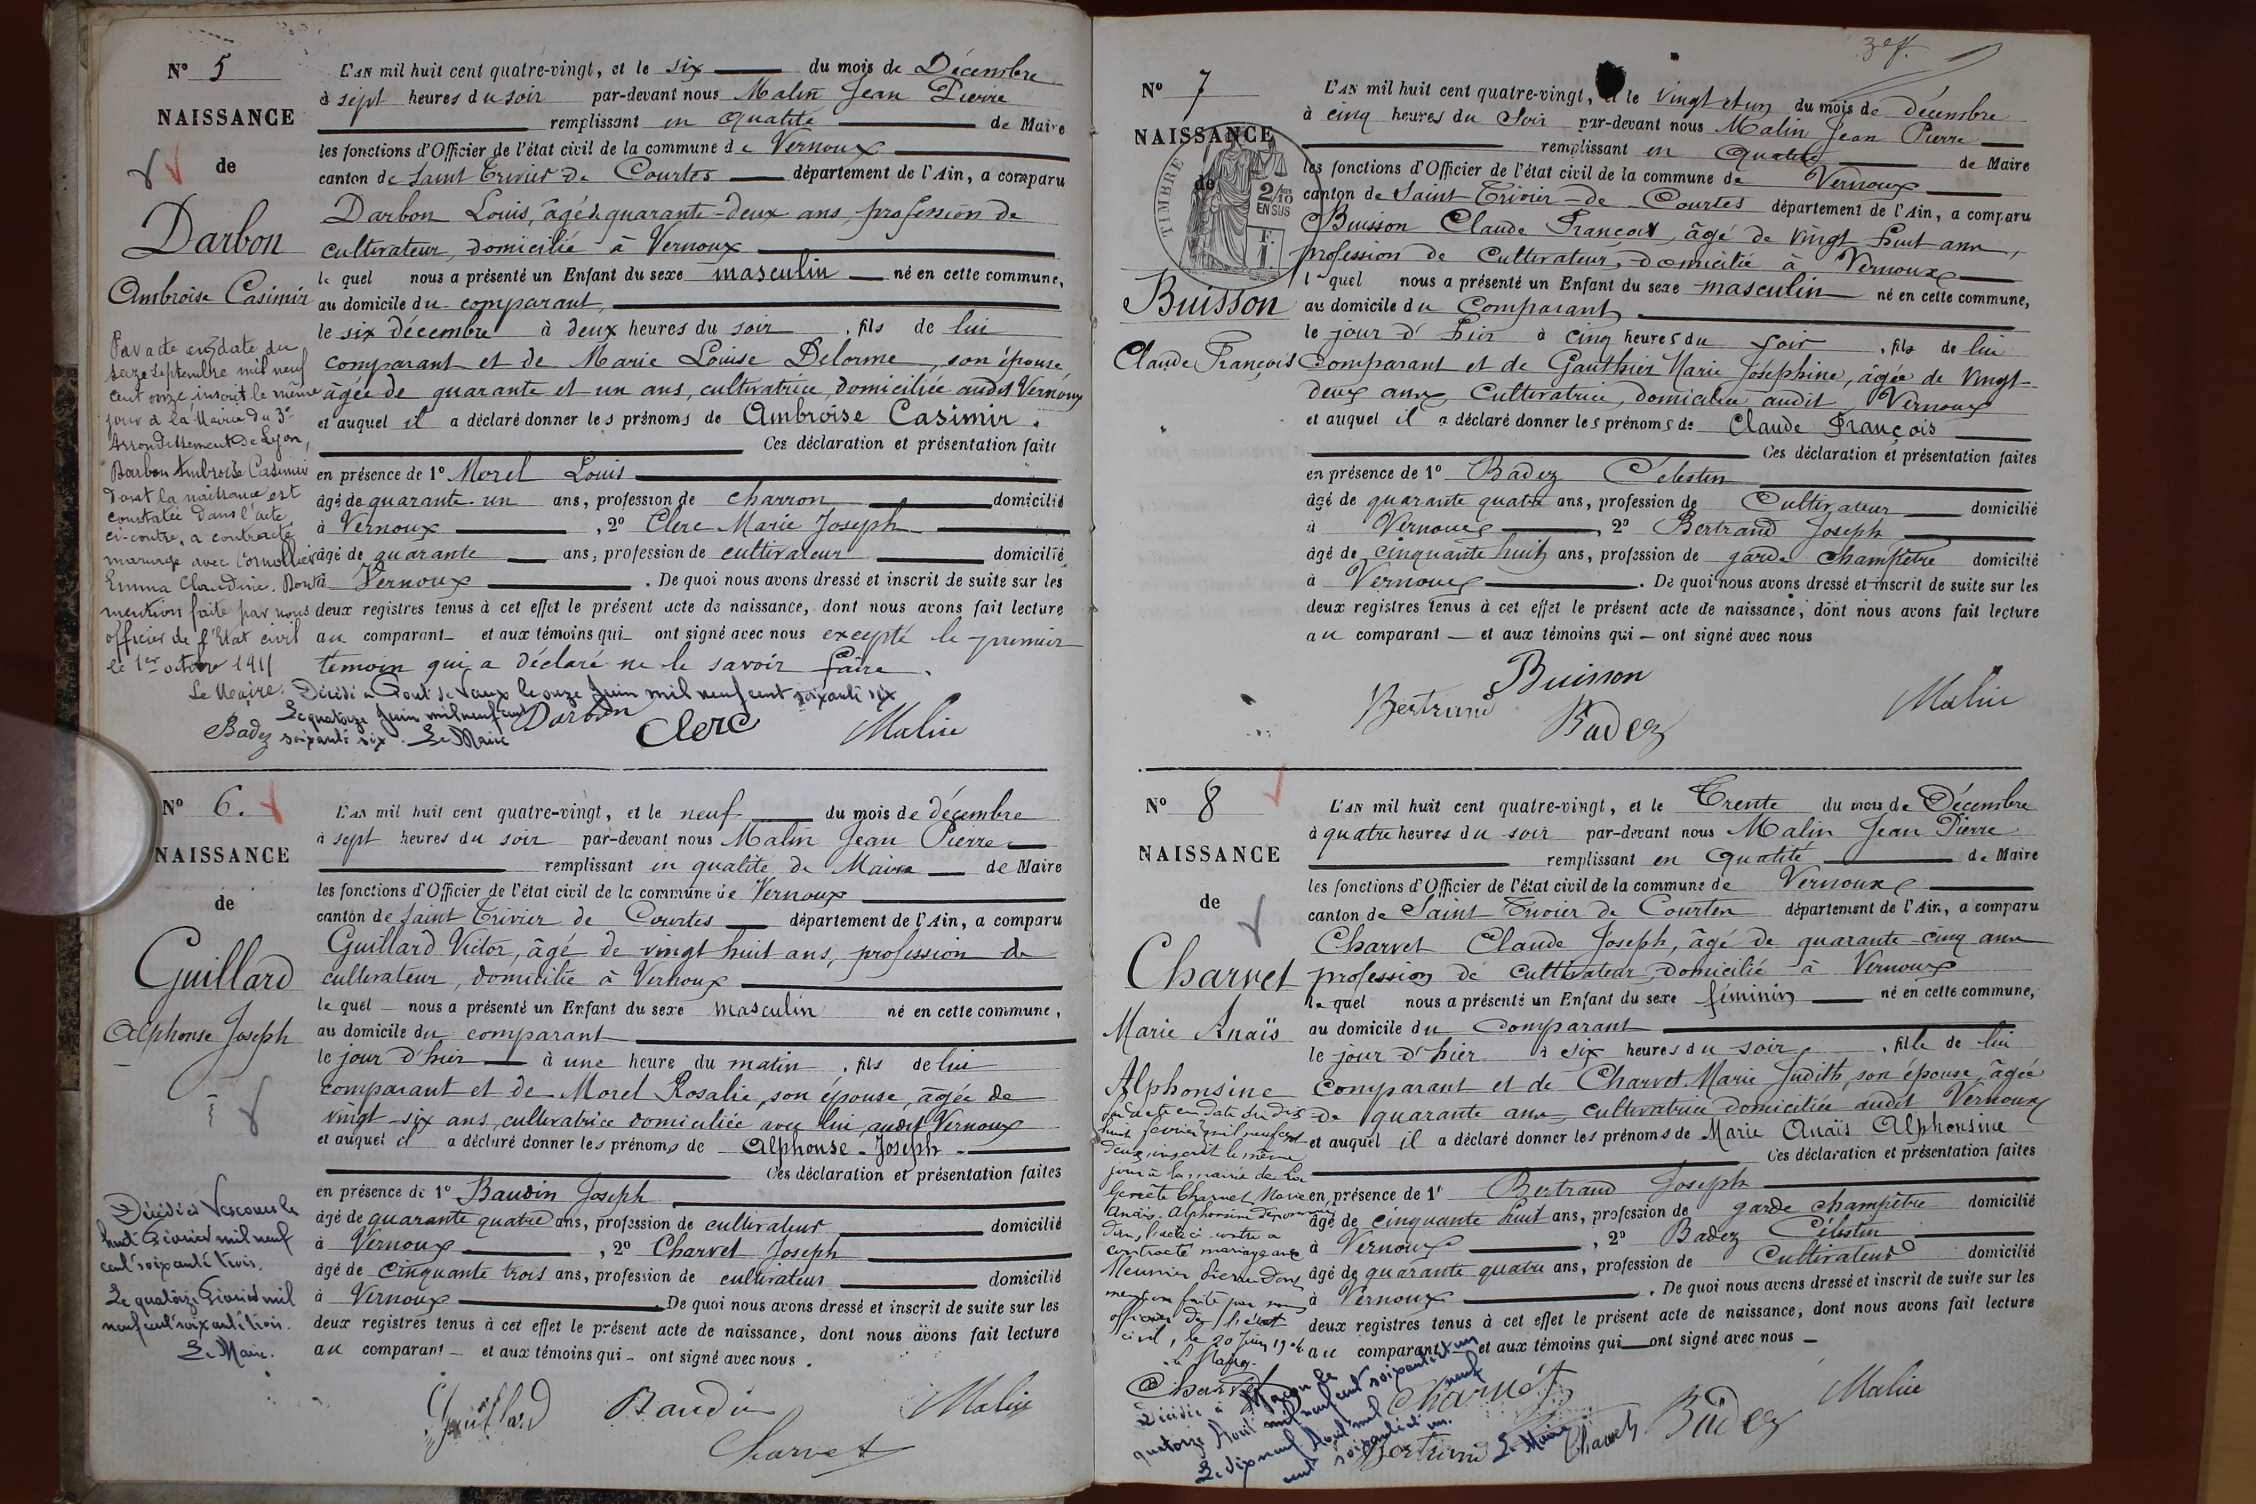 N° 5
NAISSANCE
de
Darbon
Ambroise Casimir
L'AN mil huit cent quatre-vingt, et le six du mois de Décembre
à sept heures du soir par-devant nous Malin Jean Pierre
remplissant en qualité de Maire
les fonctions d'Officier de l'état civil de la commune de Vernoux
canton de Saint Trivier de Courtes département de l'Ain, a comparu
Darbon Louis, âgé de quarante-deux ans, profession de
cultivateur, domicilié à Vernoux
le quel nous a présenté un Enfant du sexe masculin né en cette commune,
au domicile du comparant,
le six décembre à deux heures du soir, fils de lui
comparant et de Marie Louise Delorme, son épouse
âgée de quarante et un ans, cultivatrice, domiciliée audit Vernoux
et auquel il a déclaré donner les prénoms de Ambroise Casimir.
Ces déclaration et présentation faites
en présence de 1° Morel Louis
âgé de quarante-un ans, profession de charron domicilié
à Vernoux, 2° Clerc Marie Joseph
âgé de quarante ans, profession de cultivateur domicilié
à Vernoux. De quoi nous avons dressé et inscrit de suite sur les
deux registres tenus à cet effet le présent acte de naissance, dont nous avons fait lecture
au comparant et aux témoins qui ont signé avec nous excepté le premier
témoin qui a déclaré ne le savoir faire.
Par acte en date du
seize septembre mil neuf
cent onze inscrit le même
jour à la Mairie du 3e
Arrondissement de Lyon,
Darbon Ambroise Casimir
dont la naissance est
constatée dans l'acte
ci-contre, a contracté
mariage avec Cornollier
Emma Claudine. Dont
mention faite par nous
officier de l'Etat civil
le 1er octobre 1911
Le Maire.
Badez
Décédé à Pont de Vaux le onze Juin mil neuf cent soixante six
Le quatorze Juin mil neuf cent
soixante six. Le Maire
Darbon
Clerc
Malin
N° 6.
NAISSANCE
de
Guillard
Alphonse Joseph
L'AN mil huit cent quatre-vingt, et le neuf du mois de décembre
à sept heures du soir par-devant nous Malin Jean Pierre
remplissant en qualité de Maire de Maire
les fonctions d'Officier de l'état civil de la commune de Vernoux
canton de Saint Trivier de Courtes département de l'Ain, a comparu
Guillard Victor, âgé de vingt huit ans, profession de
cultivateur, domicilié à Vernoux
le quel nous a présenté un Enfant du sexe masculin né en cette commune,
au domicile du comparant
le jour d'hier à une heure du matin, fils de lui
comparant et de Morel Rosalie, son épouse, âgée de
vingt-six ans, cultivatrice domiciliée avec lui audit Vernoux
et auquel il a déclaré donner les prénoms de Alphonse-Joseph.
Ces déclaration et présentation faites
en présence de 1° Baudin Joseph
âgé de quarante quatre ans, profession de cultivateur domicilié
à Vernoux, 2° Charvet Joseph
âgé de cinquante trois ans, profession de cultivateur domicilié
à Vernoux. De quoi nous avons dressé et inscrit de suite sur les
deux registres tenus à cet effet le présent acte de naissance, dont nous avons fait lecture
au comparant et aux témoins qui ont signé avec nous.
Décédé à Vescours le
huit Février mil neuf
cent soixante trois.
Le quatorze Février mil
neuf cent soixante trois.
Le Maire.
Guillard
Baudin
Malin
Charvet
N° 7
NAISSANCE
de
TIMBRE
2/10
EN SUS
Buisson
Claude François
L'AN mil huit cent quatre-vingt, et le vingt et un du mois de décembre
à cinq heures du soir par-devant nous Malin Jean Pierre
remplissant en qualité de Maire
les fonctions d'Officier de l'état civil de la commune de Vernoux
canton de Saint-Trivier-de-Courtes département de l'Ain, a comparu
Buisson Claude François, âgé de vingt huit ans,
profession de cultivateur, domicilié à Vernoux
lequel nous a présenté un Enfant du sexe masculin né en cette commune,
au domicile du Comparant
le jour d'hier à cinq heures du soir, fils de lui
Comparant et de Gauthier Marie Joséphine, âgée de vingt-
deux ans, Cultivatrice, domiciliée audit Vernoux
et auquel il a déclaré donner les prénoms de Claude François
Ces déclaration et présentation faites
en présence de 1° Badez Célestin
âgé de quarante quatre ans, profession de Cultivateur domicilié
à Vernoux, 2° Bertrand Joseph
âgé de cinquante huit ans, profession de garde champêtre domicilié
à Vernoux. De quoi nous avons dressé et inscrit de suite sur les
deux registres tenus à cet effet le présent acte de naissance, dont nous avons fait lecture
au comparant et aux témoins qui ont signé avec nous
Buisson
Bertrand
Badez
Malin
N° 8
NAISSANCE
de
Charvet
Marie Anaïs
Alphonsine
L'AN mil huit cent quatre-vingt, et le Trente du mois de Décembre
à quatre heures du soir par-devant nous Malin Jean Pierre
remplissant en qualité de Maire
les fonctions d'Officier de l'état civil de la commune de Vernoux
canton de Saint-Trivier de Courtes département de l'Ain, a comparu
Charvet Claude Joseph, âgé de quarante-cinq ans
profession de cultivateur domicilié à Vernoux
le quel nous a présenté un Enfant du sexe féminin né en cette commune,
au domicile du Comparant
le jour d'hier à six heures du soir, fille de lui
comparant et de Charvet Marie Judith, son épouse, âgée
de quarante ans, cultivatrice domiciliée audit Vernoux
et auquel il a déclaré donner les prénoms de Marie Anaïs Alphonsine
Ces déclaration et présentation faites
en présence de 1° Bertrand Joseph
âgé de cinquante huit ans, profession de garde champêtre domicilié
à Vernoux, 2° Badez Célestin
âgé de quarante quatre ans, profession de Cultivateur domicilié
à Vernoux. De quoi nous avons dressé et inscrit de suite sur les
deux registres tenus à cet effet le présent acte de naissance, dont nous avons fait lecture
au comparant et aux témoins qui ont signé avec nous
par acte en date du dix
huit février mil neuf cent
deux, inscrit le même
jour à la mairie de La
Genète Charvet Marie
Anaïs Alphonsine dénommée
dans l'acte ci contre a
contracté mariage avec
Meunier Pierre Dont
mention faite par nous
officier de l'état
civil, le 20 Juin 190
Le Maire.
Charvet
Décédée à Macon le
quatorze Août mil neuf cent soixante et un
Le dix neuf Août mil neuf
cent soixante et un.
Le Maire
Charvet
Bertrand
Badez
Malin